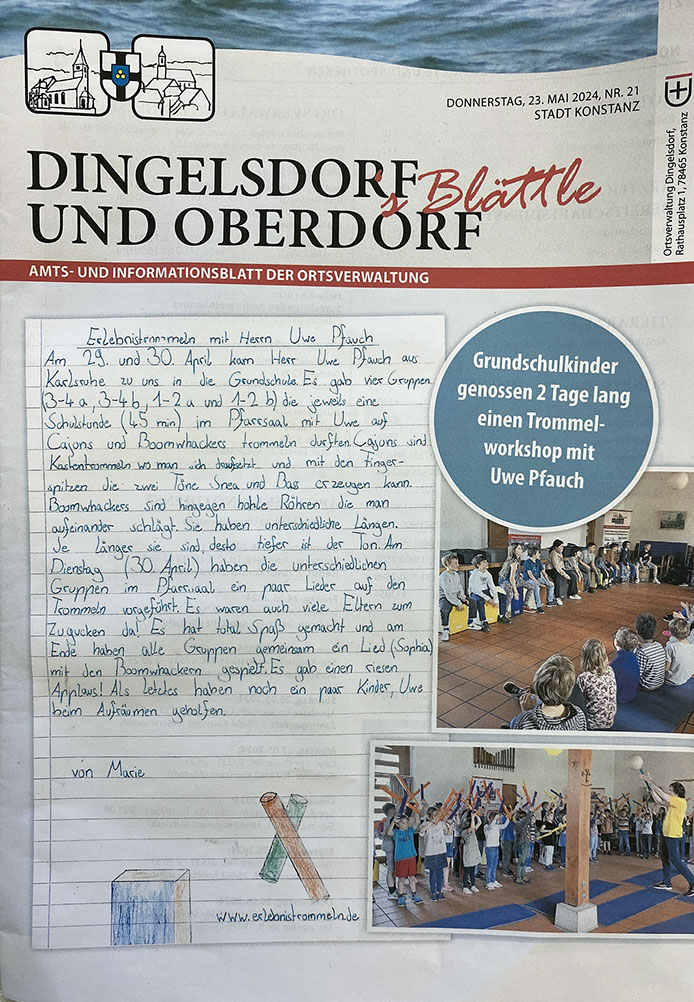 DONNERSTAG, 23. MAI 2024, NR. 21
STADT KONSTANZ
Ortsverwaltung Dingelsdorf,
Rathausplatz 1, 78465 Konstanz
DINGELSDORF
UND OBERDORF
's Blättle
AMTS- UND INFORMATIONSBLATT DER ORTSVERWALTUNG
Erlebnistrommeln mit Herrn Uwe Pfauch
Am 29. und 30. April kam Herr Uwe Pfauch aus
Karlsruhe zu uns in die Grundschule. Es gab vier Gruppen
(3-4 a, 3-4 b, 1-2 a und 1-2 b) die jeweils eine
Schulstunde (45 min) im Pfarrsaal mit Uwe auf
Cajons und Boomwhackers trommeln durften. Cajons sind
Kastentrommeln wo man sich draufsetzt und mit den Finger-
spitzen die zwei Töne Snea und Bass erzeugen kann.
Boomwhackers sind hingegen hohle Röhren die man
aufeinander schlägt. Sie haben unterschiedliche Längen.
Je länger sie sind, desto tiefer ist der Ton. Am
Dienstag (30. April) haben die unterschiedlichen
Gruppen im Pfarrsaal ein paar Lieder auf den
Trommeln vorgeführt. Es waren auch viele Eltern zum
Zugucken da! Es hat total Spaß gemacht und am
Ende haben alle Gruppen gemeinsam ein Lied (Sophia)
mit den Boomwhackern gespielt. Es gab einen riesen
Applaus! Als letztes haben noch ein paar Kinder, Uwe
beim Aufräumen geholfen.
von Marie
www.erlebnistrommeln.de
Grundschulkinder
genossen 2 Tage lang
einen Trommel-
workshop mit
Uwe Pfauch